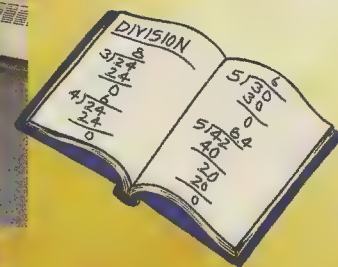 DIVISION
8
3)24
24
0
6
4)24
24
0
6
5)30
30
0
8.4
5)42
40
20
20
0